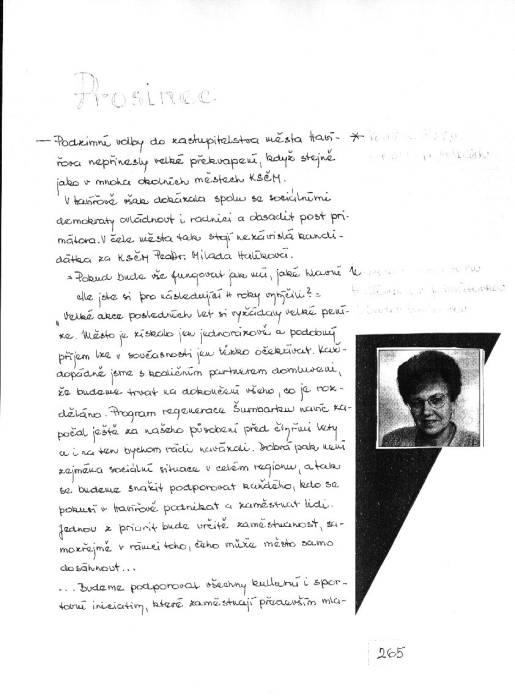 Prosinec
— Podzimní volby do zastupitelstva města Haví-
řova nepřinesly velké překvapení, když stejně
jako v mnoha okolních městech KSČM.
V Havířově však dokázala spolu se sociálními
demokraty ovládnout i radnici a obsadit post pri-
mátora. V čele města tak stojí nezávislá kandi-
dátka za KSČM PeaDr. Milada Halíková.
= Pokud bude vše fungovat jak má, jaké hlavní
cíle jste si pro následující 4 roky vytýčili? =
"Velké akce posledních let si vyžádaly velké pení-
ze. Město je získalo jen jednorázově a podobný
příjem lze v současnosti jen těžko očekávat. Kaž-
dopádně jsme s koaličním partnerem domluveni,
že budeme trvat na dokončení všeho, co je roz-
děláno. Program regenerace Šumbarku navíc za-
počal ještě za našeho působení před čtyřmi lety
a i na ten bychom rádi navázali. Dobrá pak není
zejména sociální situace v celém regionu, a tak
se budeme snažit podporovat každého, kdo se
pokusí v Havířově podnikat a zaměstnat lidi.
Jednou z priorit bude určitě zaměstnanost, sa-
mozřejmě v rámci toho, čeho může město samo
dosáhnout...
... Budeme podporovat všechny kulturní i spor-
tovní iniciativy, které zaměstnají především mla-
265